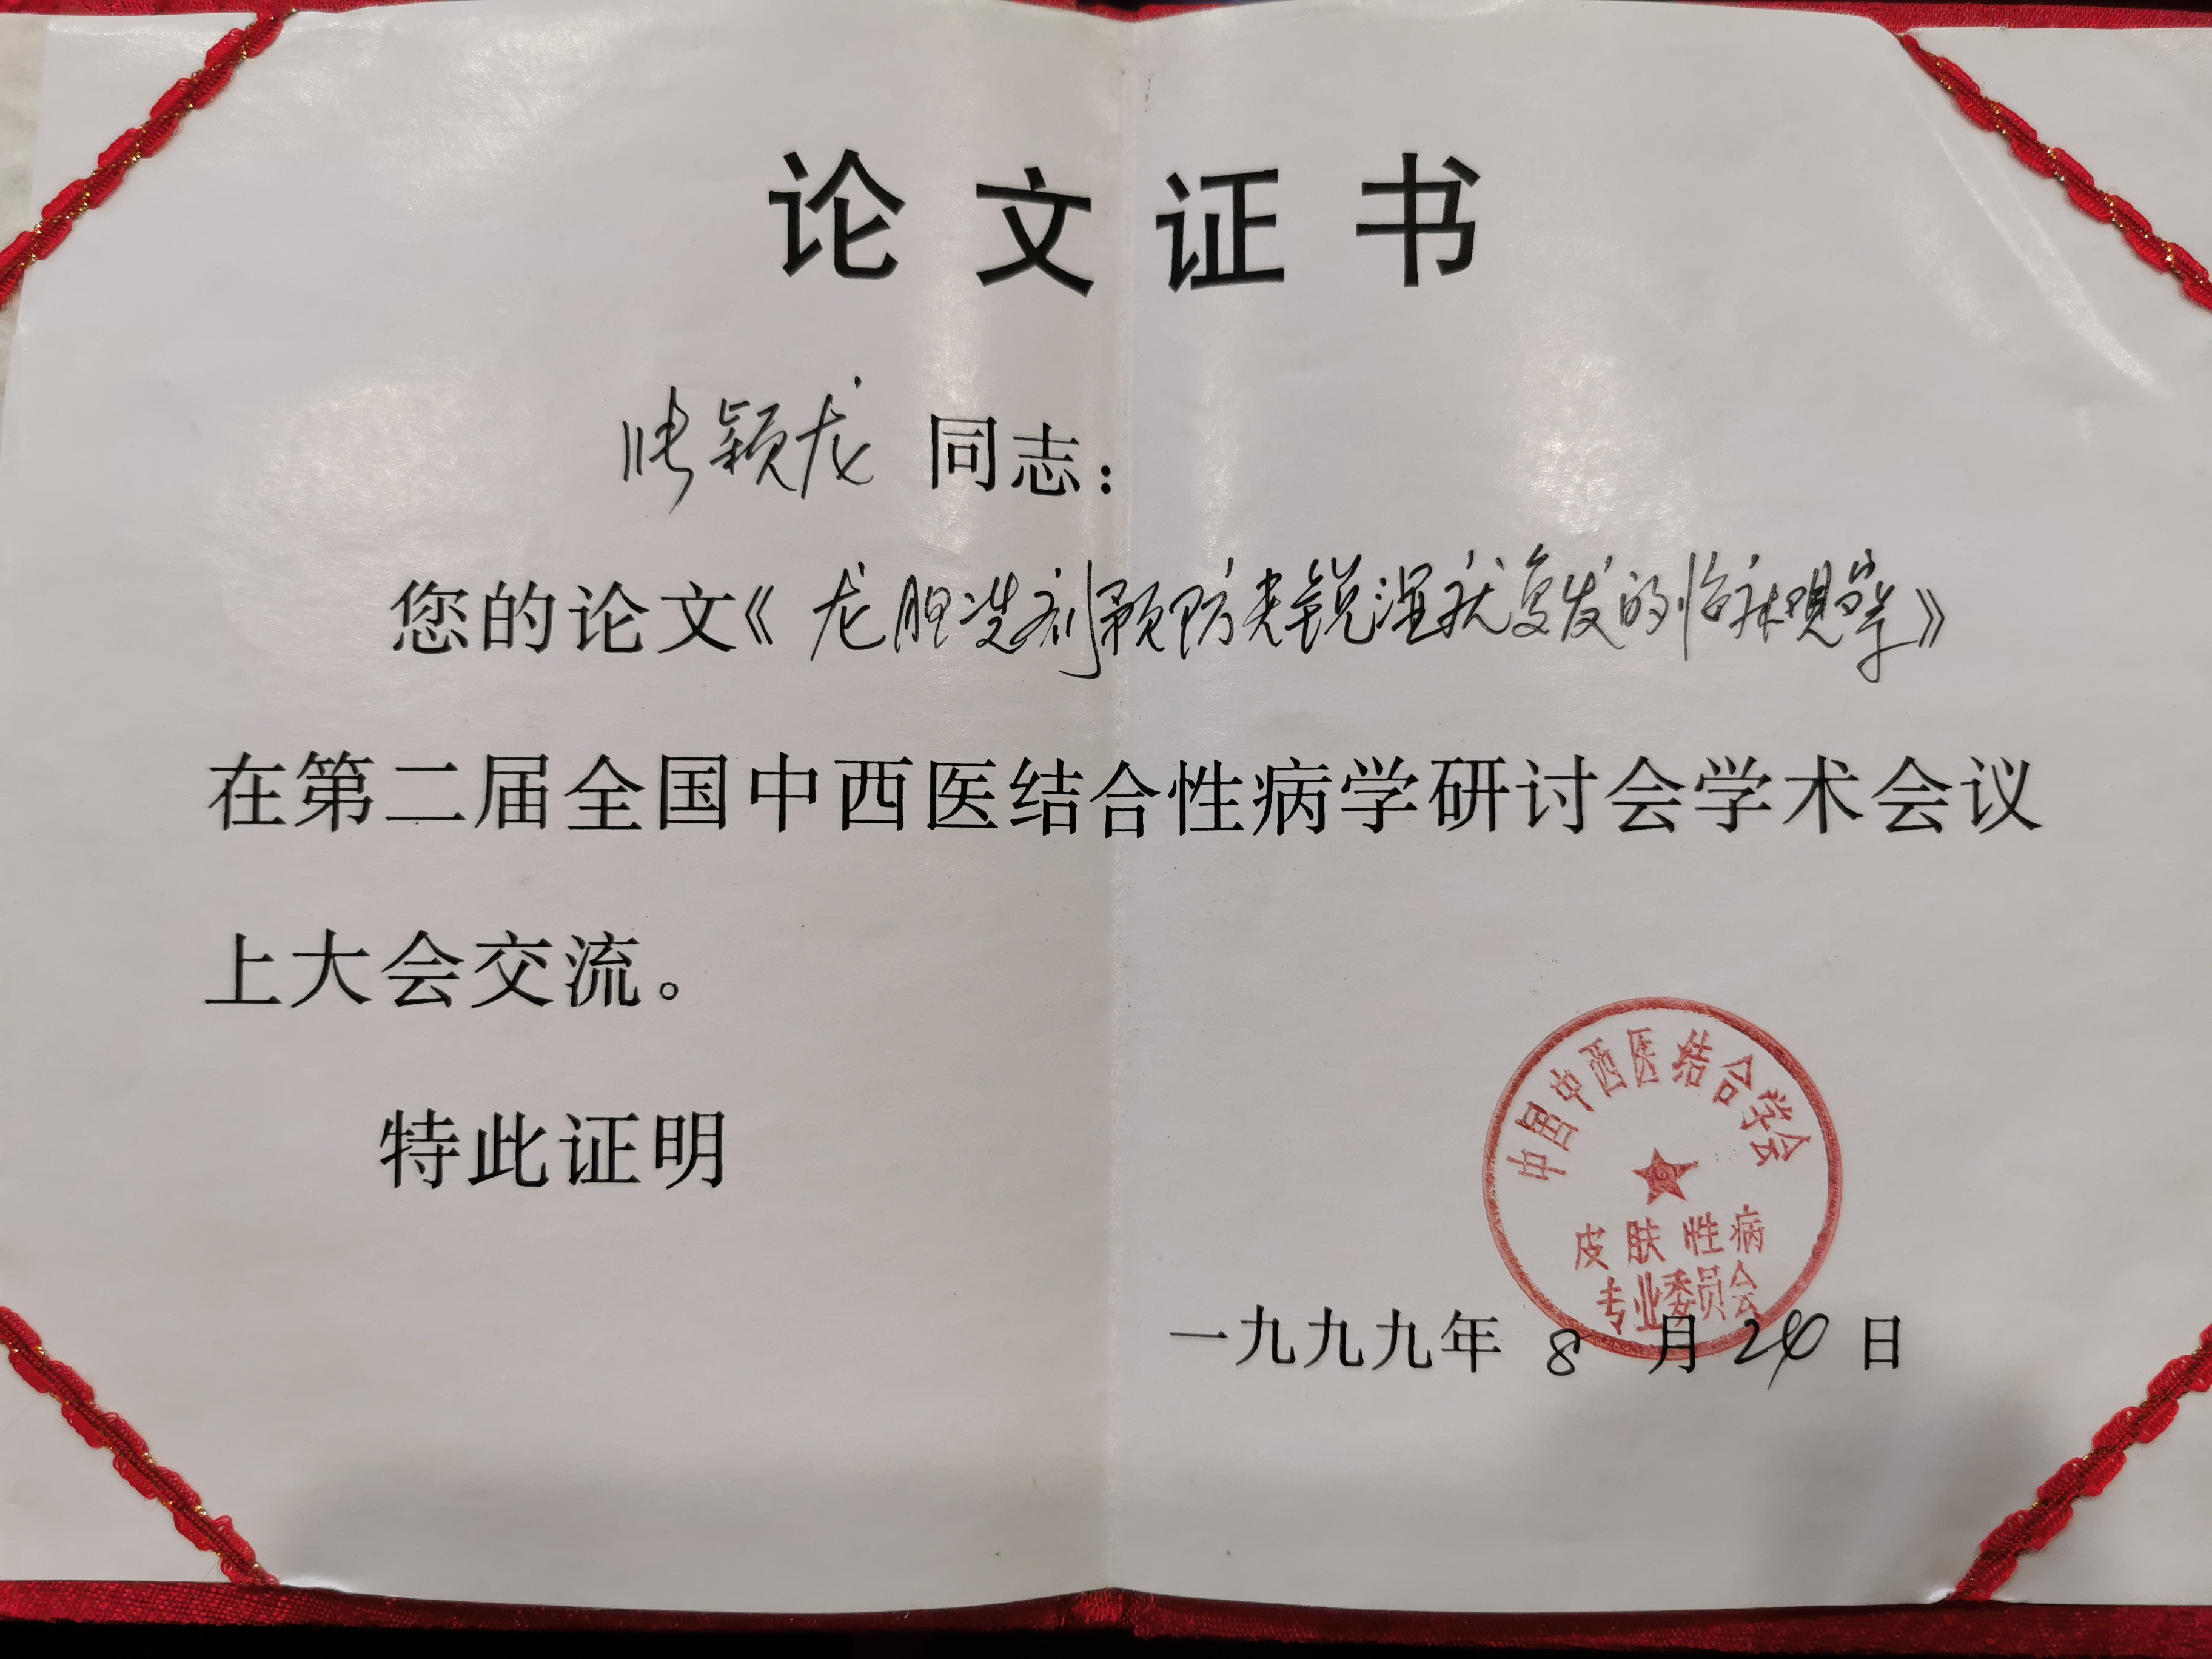 论文证书
张颖龙 同志：
您的论文《龙胆洗剂预防尖锐湿疣复发的临床观察》
在第二届全国中西医结合性病学研讨会学术会议
上大会交流。
特此证明
中国中西医结合学会
皮肤性病
专业委员会
一九九九年 8 月 日